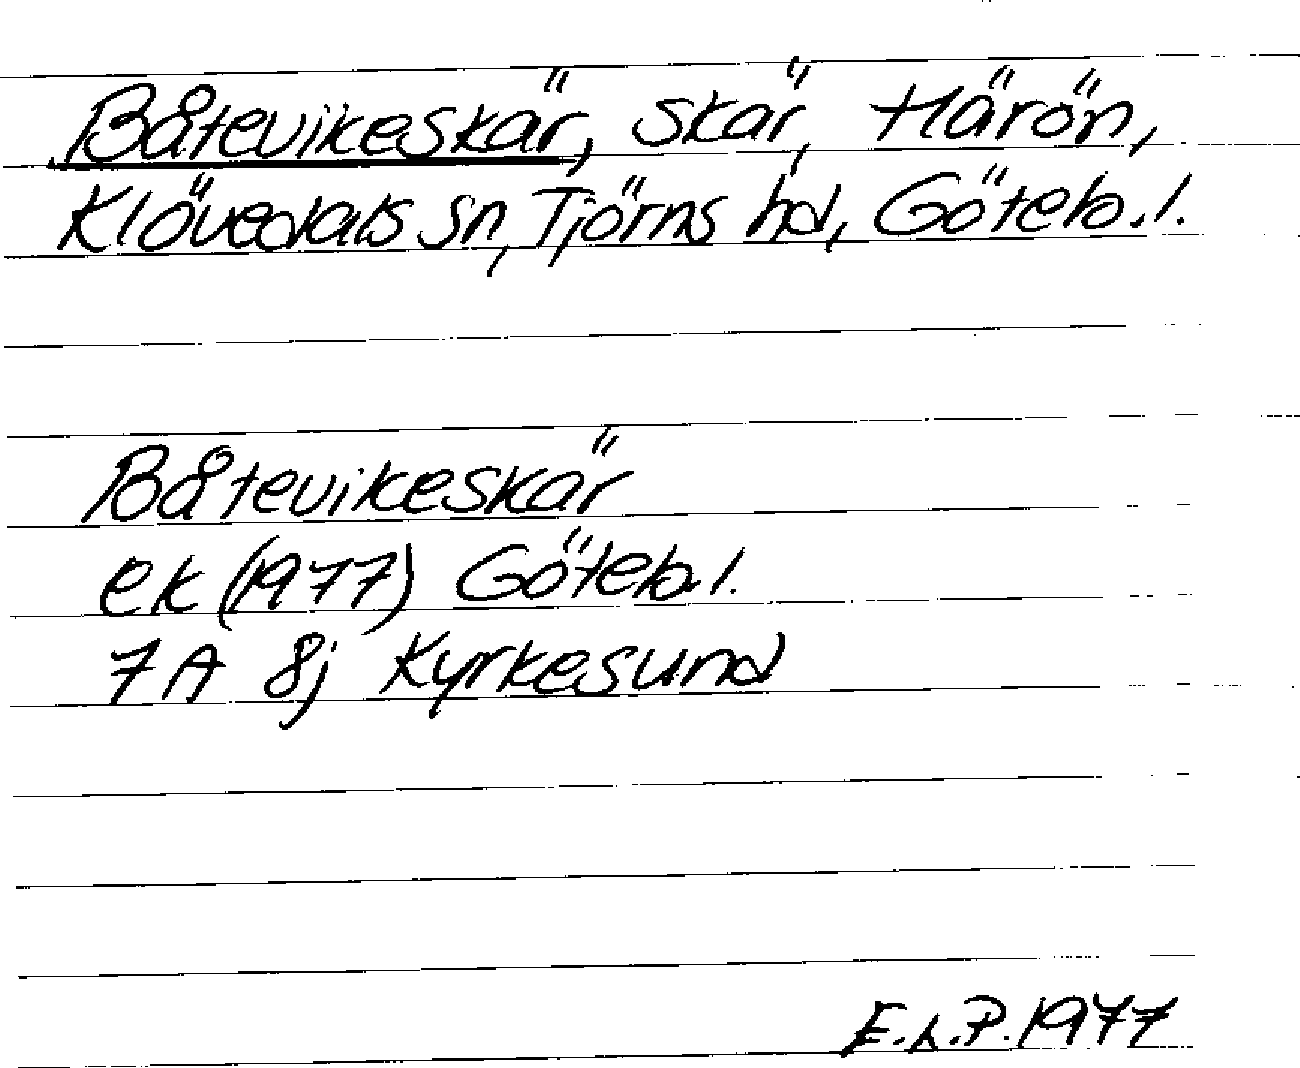 Båtevikeskär, skär, Härön,
Klövedals sn, Tjörns hd, Göteb.l.
Båtevikeskär
ek (1977) Göteb.l.
7A 8j Kyrkesund
E.L.P. 1977